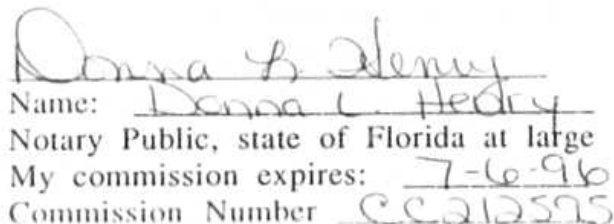 Donna L. Henry
Name: Donna L. Hedry
Notary Public, state of Florida at large
My commission expires: 7-6-96
Commission Number CC212595